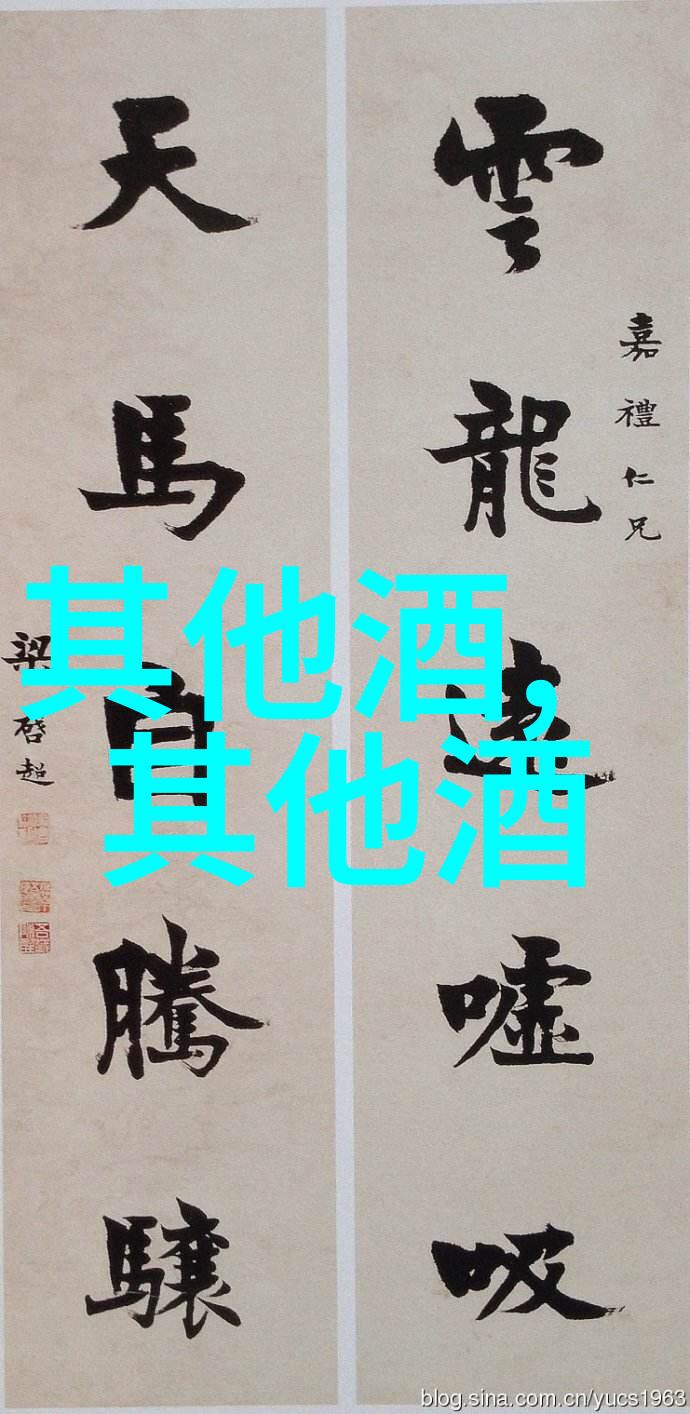 雲龍遠噓吸
嘉禮仁兄
天馬自騰驤
梁啓超
其他酒,
其他酒
blog.sina.com.cn/yucs1963